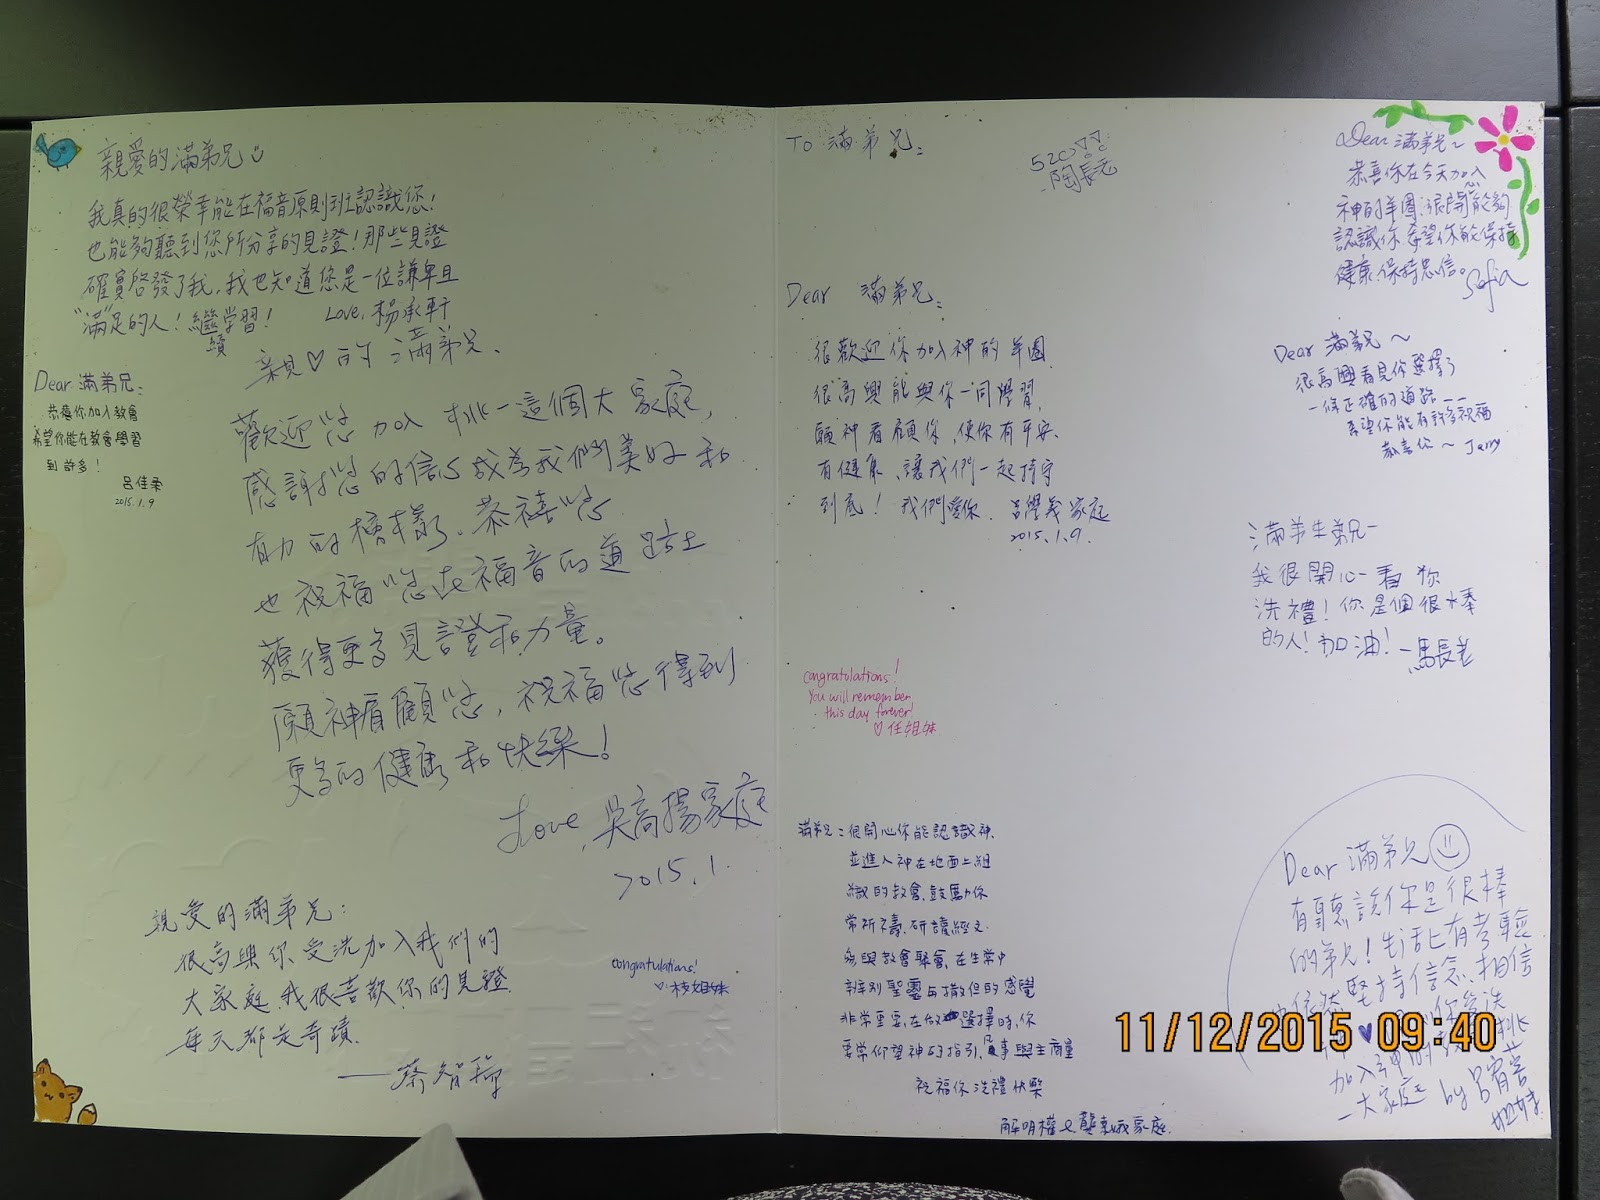 親愛的滿弟兄
我真的很榮幸能在福音原則班認識您!
也能夠聽到您所分享的見證!那些見證
確實啓發了我,我也知道您是一位謙卑且
"滿"足的人!繼續学習!
Love, 楊承軒
Dear 滿弟兄:
恭禧你加入教會
希望你能在教會學習
到許多!
呂佳柔
2015.1.9
親♡的滿弟兄、
歡迎您加入桃一這個大家庭,
感謝您的信心成為我們美好和
有力的榜樣。恭禧您
也祝福您在福音的道路上
獲得更多見證和力量。
願神看顧您,祝福您得到
更多的健康和快樂!
Love, 吳高揚家庭
2015.1.
親愛的滿弟兄:
很高興你受洗加入我們的
大家庭,我很喜歡你的見證.
每天都是奇蹟.
congratulations!
To 滿弟兄:
520
陶長老
Dear 滿弟兄:
很歡迎你加入神的羊圈.
很高興能與你一同學習,
願神看顧你、使你有平安、
有健康、讓我們一起持守
到底!我們愛你. 呂學義家庭
2015.1.9.
congratulations!
You will remember
this day forever!
♡任姐妹
滿弟兄:很開心你能認識神.
並進入神在地面上組
織的教會,鼓勵你
常祈禱.研讀經文.
參與教會聚會,在生常中
辨別聖靈与撒但的感覺
非常重要,在做選擇時,你
要常仰望神的指引,凡事與主商量
祝福你洗禮快樂
Dear 滿弟兄~
恭喜你在今天加入
神的羊圈.很開心能夠
認識你.希望你能保持
健康.保持忠信。
Sofia
Dear 滿弟兄~
很高興看見你選擇了
一條正確的道路
希望你能有許多祝福
恭喜你~ Jerry
我很開心看你
洗禮!你是個很棒
的人!加油! -馬長老
Dear 滿弟兄
有聽說你是很棒
的弟兄!生活上有考驗
依然堅持信念.相信
加入神的
一大家庭
by 呂宥芸
姐妹
11/12/2015 09:40